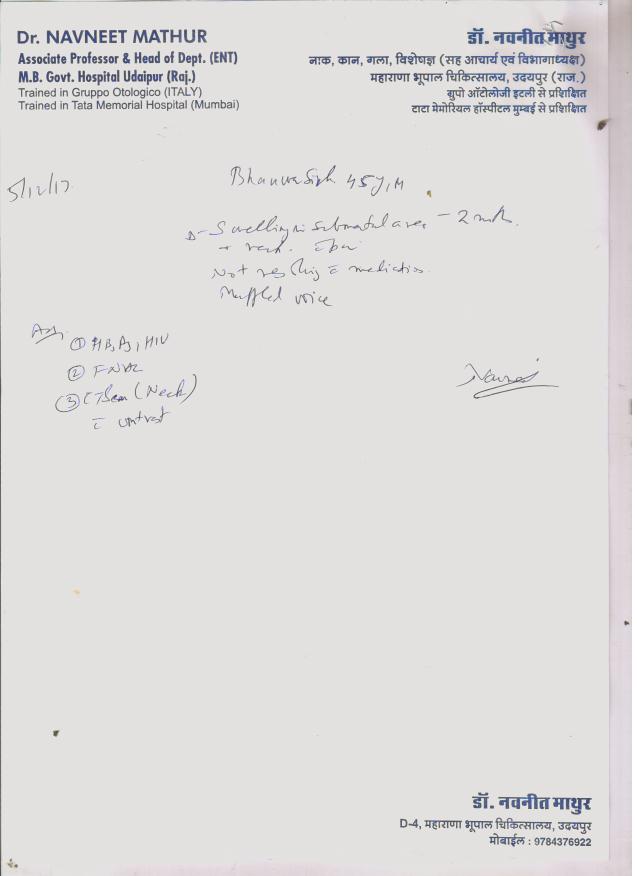 Dr. NAVNEET MATHUR
Associate Professor & Head of Dept. (ENT)
M.B. Govt. Hospital Udaipur (Raj.)
Trained in Gruppo Otologico (ITALY)
Trained in Tata Memorial Hospital (Mumbai)
डॉ. नवनीत माथुर
नाक, कान, गला, विशेषज्ञ (सह आचार्य एवं विभागाध्यक्ष)
महाराणा भूपाल चिकित्सालय, उदयपुर (राज.)
ग्रुपो ऑटोलोजी इटली से प्रशिक्षित
टाटा मेमोरियल हॉस्पीटल मुम्बई से प्रशिक्षित
5/12/17
45y, M
Swelling in submental area - 2 mth.
Not resolving c̄ medication.
Muffled voice
① HIV
② FNAC
③ CT Scan (Neck)
c̄ contrast
डॉ. नवनीत माथुर
D-4, महाराणा भूपाल चिकित्सालय, उदयपुर
मोबाईल : 9784376922